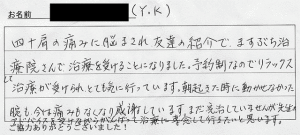 お名前 (Y.K)
四十肩の痛みに悩まされ友達の紹介で、ますぶち治
療院さんで治療を受けることになりました。予約制なのでリラックスして
治療が受けられとても楽に行っています。朝起きた時に動かせなかった
腕も、今は痛みもなくなり感謝しています。まだ完治していませんが先生の
アドバイスを受けながらがんばって治療に専念して行きたいと思います。
ご協力ありがとうございました!